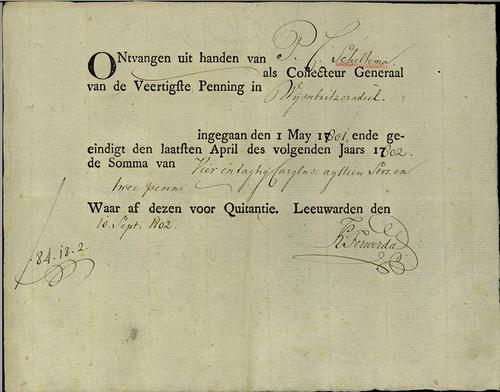 ONtvangen uit handen van P. C. Scheltema
als Collecteur Generaal
van de Veertigste Penning in Wijmbritzeradeel.
ingegaan den 1 May 1801. ende ge-
eindigt den laatsten April des volgenden Jaars 1802.
de Somma van Vier entagtig Carglns: agttien Strs. en
twee penni
Waar af dezen voor Quitantie. Leeuwarden den
10. Sept. 1802.
84-18-2
Ferwerda